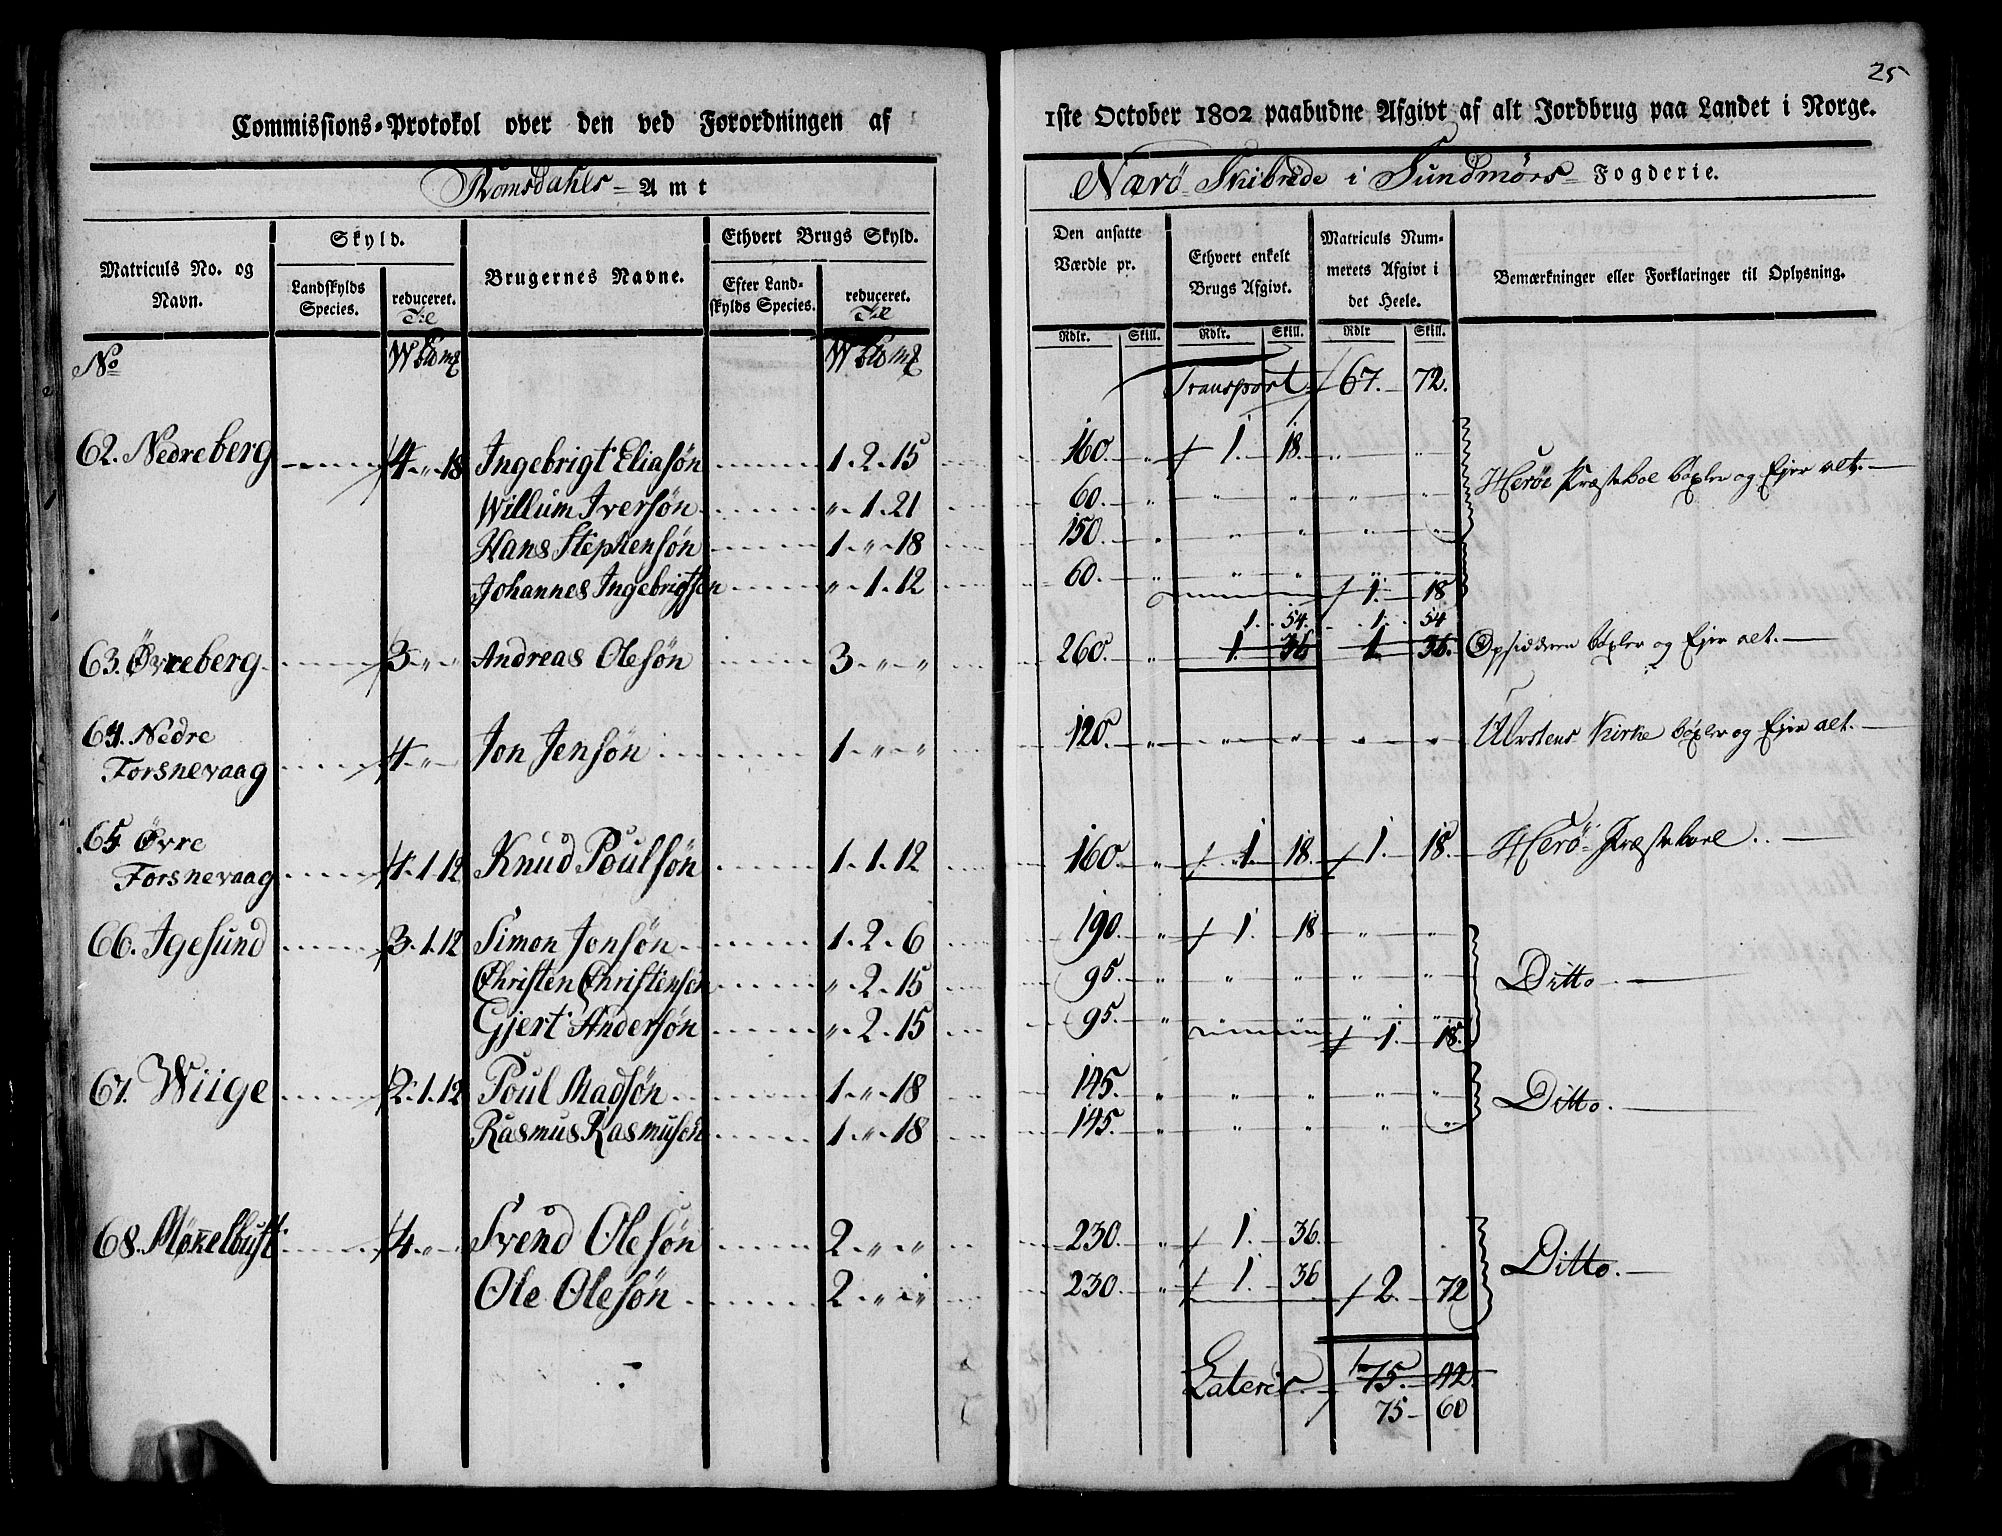 25
Commissions-Protokol over den ved Forordningen af 1ste October 1802 paabudne Afgivt af alt Jordbrug paa Landet i Norge.
Romsdahls Amt
Nærø Skibrede i Sundmørs Fogderie.
Matriculs No. og Navn.
Skyld.
Landskylds Species.
reduceret.
Brugernes Navne.
Ethvert Brugs Skyld.
Efter Landskylds Species.
reduceret.
Den ansatte Værdie pr.
Ethvert enkelt Brugs Afgivt.
Matriculs Nummerets Afgivt i det Heele.
Bemærkninger eller Forklaringer til Oplysning.
Rdlr. Skill. Rdlr. Skill. Rdlr Skill.
No
Transport 67. 72.
62. Nedreberg 4 " 18 Ingebrigt Eliasøn 1 2 15 160. " 1. 18. " " Herøe Præsteboel böxler og Ejer alt.
Willum Iversøn " 1 21 60. " " " " "
Hans Stephensøn 1 " 18 150. " " "
Johannes Ingebrigtsen " 1 12 60. " " " " "
1. 18
1. 54. 1. 54
63. Øvreberg 3 " " Andreas Olesøn 3 " " 260. " 1. 36 1 36. Opsidderen böxler og Ejer alt.
64. Nedre Forsnevaag 4 " Jon Jensøn 1 " " 120. " " " " " Ulvstens Kirke böxler og Ejer alt.
65 Øvre Forsnevaag 4 1 12 Knud Poulsøn 1 1 12 160. " 1. 18. 1. 18. Herø Præsteboel
66. Igesund 3 1 12 Simon Jonsøn 1 2 6 190. " 1. 18 " "
Christen Christensøn " 2 15 95. " " " " " Ditto
Gjert Andersøn " 2 15 95. " " "
1. 18.
67. Wiige 2 1 12 Poul Madsøn 1 " 18 145. " " " " " Ditto.
Rasmus Rasmusen 1 " 18 145. " " " " "
68. Møkelbust 4 " Svend Olesøn 2 " " 230. " 1. 36. Ditto.
Ole Olesøn 2 " " 230. " 1. 36 2. 72
Lateris 75. 42.
75 60